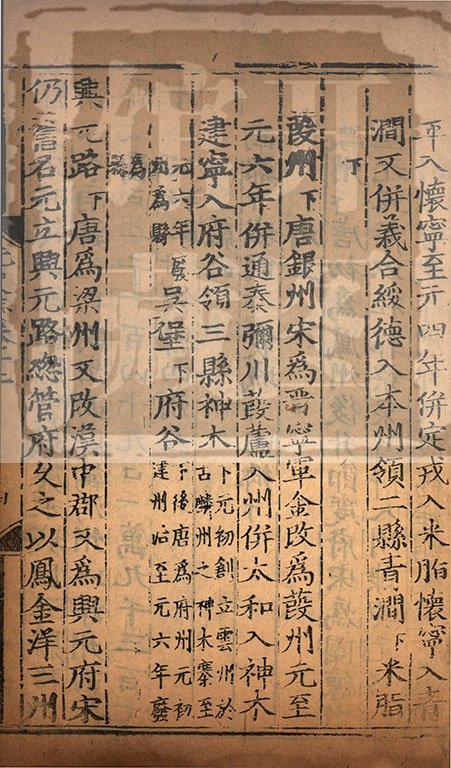 平入懷寧至元四年併定戎入米脂懷寧入青
澗又併義合綏德入本州領二縣青澗下米脂
下
葭州下唐銀州宋爲晋寧軍金改爲葭州元至
元六年併通秦彌川葭蘆入州併太和入神木
建寧入府谷領三縣神木下元初創立雲州於古麟州之神木寨至
元六年廢州爲縣吳堡下府谷下後唐爲府州元初建州治至元六年廢
爲縣
興元路下唐爲梁州又改漢中郡又爲興元府宋
仍舊名元立興元路總管府久之以鳳金洋三州